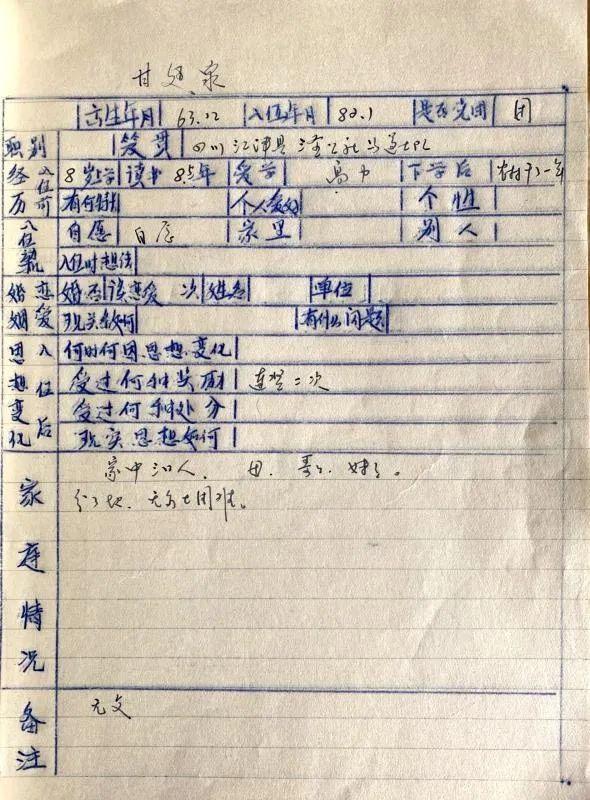 甘 泉
出生年月 63.12 入伍年月 82.1 是否党团 团
职别 籍贯 四川江津县
入伍前经历 8岁上学 读书 8.5年 文学 高中 下学后 农村干一年
有何特长 个人爱好 个性
入伍 自愿 自愿 家里 别人
入伍时想法
婚姻恋爱 婚否 谈恋爱 次 姓名 单位
现关系如何 有什么问题
入伍后思想变化 何时何因思想变化
受过何种奖励 连奖二次
受过何种处分
现实思想如何
家庭情况 家中 人. 母. 哥哥. 妹妹。
分了地. 无多大困难。
备注 无父